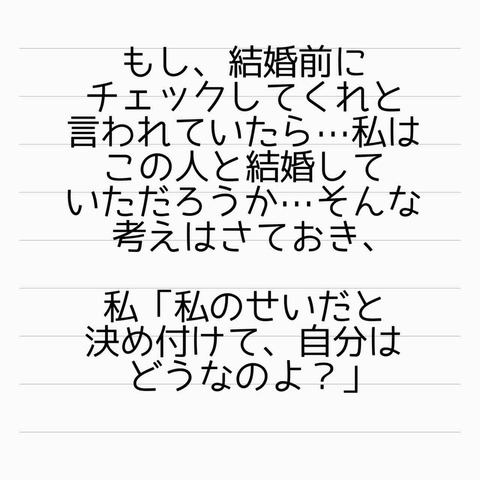 もし、結婚前に
チェックしてくれと
言われていたら…私は
この人と結婚して
いただろうか…そんな
考えはさておき、
私「私のせいだと
決め付けて、自分は
どうなのよ？」